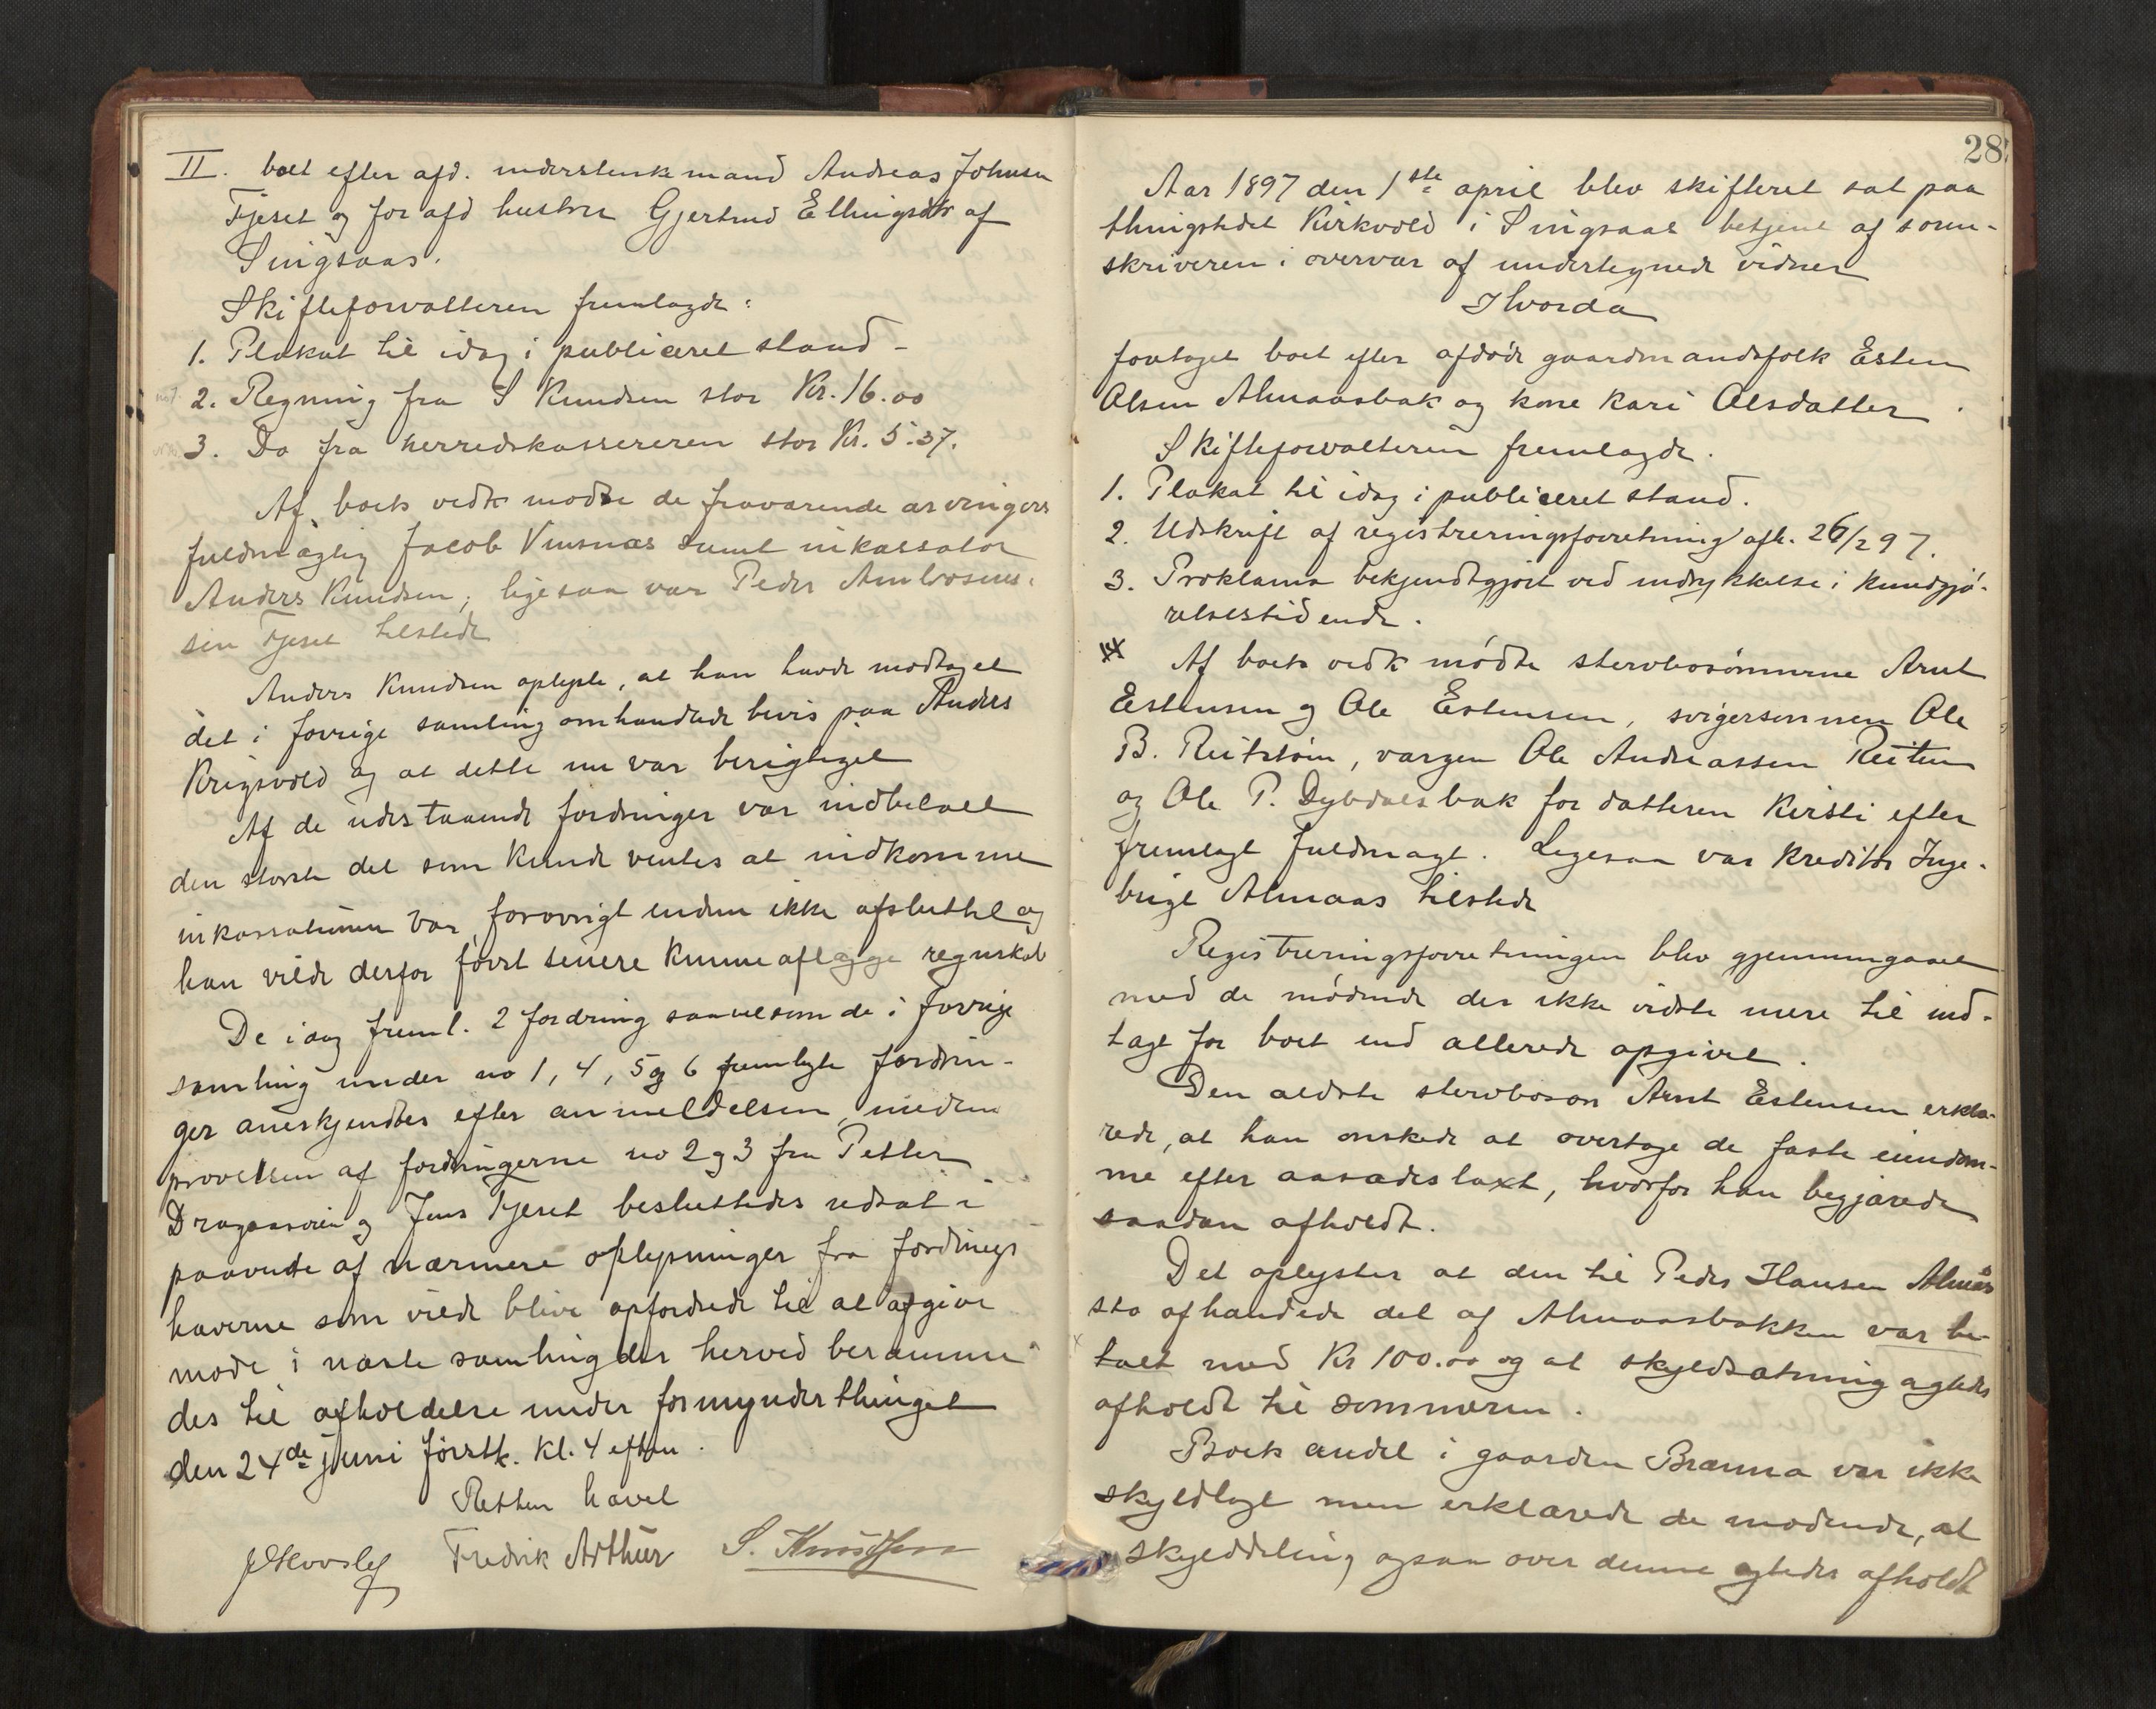 II. boet efter afd. understenk mand Andreas Johnsen
Fjeset og for afd hustru Gjertrud Ellingsdtr af
Singsaas.
Skifteforvalteren fremlagde:
1. Plakat til idag i publiceret stand -
2. Regning fra S Knudsen stor Kr. 16.00
3. Do fra herredskassereren stor Kr. 5.37.
Af boets vedk mødte de fraværende arvingers
fuldmægtig Jacob Vinsnæs samt inkassator
Anders Knudsen; ligesaa var Peder Ambrosius-
sen Fjeset tilstede
Anders Knudsen oplyste, at han havde modtaget
det i forrige samling omhandlede bevis paa Anders
Krigsvold og at dette nu var berigtiget
Af de udestaaende fordringer var indbetalt
den største del som kunde ventes at indkomme
inkassationen var forøvrigt endnu ikke afsluttet og
han vilde derfor først senere kunne aflægge regnskab
De idag freml. 2 fordring saavelsom de i forrige
samling under no 1, 4, 5 og 6 fremlagte fordrin-
ger anerkjendtes efter anmeldelsen, medens
prøvelsen af fordringerne no 2 og 3 fra Petter
Dragaasvien og Jens Fjeset besluttedes udsat i
paavente af nærmere oplysninger fra fordrings
haverne som vilde blive opfordrede til at afgive
møde i næste samling der herved beramme
des til afholdelse under formynderthinget
den 24de juni førstk. kl. 4 efterm.
Retten hævet
Fredrik Arthur S. Knudsen
28
Aar 1897 den 1ste april blev skifteret sat paa
thingstedet Kirkvold i Singsaas betjent af soren-
skriveren i overvær af undertegnede vidner
Hvorda
foretoges boet efter afdøde gaardmandsfolk Esten
Olsen Almaasbak og kone Kari Olsdatter.
Skifteforvalteren fremlagde.
1. Plakat til idag i publiceret stand.
2. Udskrift af registreringsforretning afh. 26/2 97.
3. Proklama bekjendtgjort ved indrykkelse i Kundgjø-
relsestidende.
Af boets vedk mødte stervbosønnerne Arnt
Estensen og Ole Estensen, svigersønnen Ole
B. Reitstøin, værgen Ole Andreassen Reiten
og Ole P. Dybdalsbak for datteren Kirsti efter
fremlagt fuldmagt. Ligesaa var kreditor Inge-
brigt Almaas tilstede
Registreringsforretningen blev gjennemgaaet
med de mødende der ikke vidste mere til ind-
tægt for boet end allerede opgivet.
Den ældste stervbosøn Arnt Estensen erklæ-
rede, at han ønskede at overtage de faste eiendom-
me efter aasædestaxt, hvorfor han begjærede
saadan afholdt.
Det oplystes at den til Peder Hansen Almås
sto afhændede del af Almaasbakken var be-
talt med Kr 100.00 og at skyldsætning agtedes
afholdt til sommeren.
Boets andel i gaarden Brænna var ikke
skyldlagt men erklærede de mødende, at
skylddeling ogsaa over denne agtedes afholdt